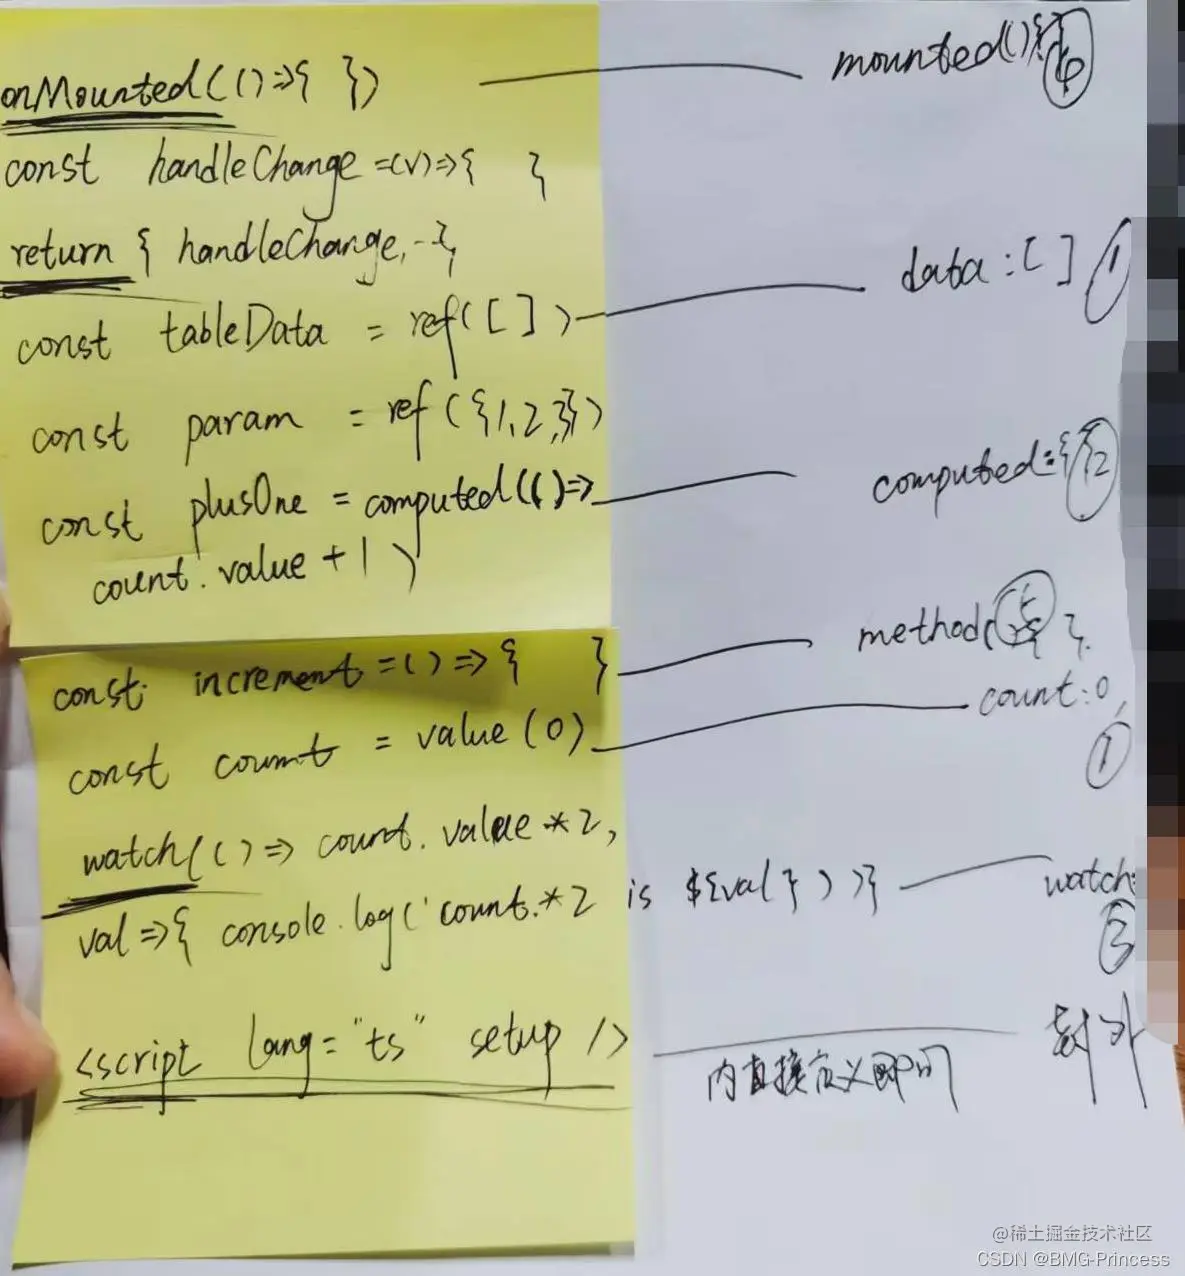 onMounted(()=>{ }) mounted(){
const handleChange =(v)=>{ }
return { handleChange, }
data:[] 1
const tableData = ref([])
const param = ref({1,2,3})
const plusOne = computed(()=> computed:{ 2
count.value + 1 )
method
const increment = () => { } }
count:0,
const count = value(0) 1
watch(()=> count.value *2,
val=>{ console.log('count.*2 is ${val}`))} watch:
3
<script lang="ts" setup />
内直接定义即可
@稀土掘金技术社区
CSDN @BMG-Princess